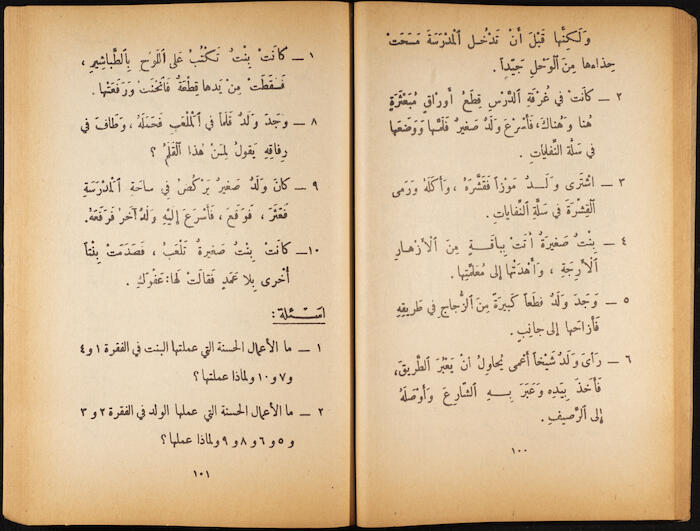 وَلَكِنَّها قَبْلَ أَنْ تَدْخُلَ ٱلْمَدْرَسَةَ مَسَحَتْ
حِذاءَها مِنَ ٱلْوَحْلِ جَيِّداً.
٢ – كانَتْ في غُرْفَةِ ٱلدَّرْسِ قِطَعُ أَوْراقٍ مُبَعْثَرَةٍ
هُنا وَهُناكَ، فَأَسْرَعَ وَلَدٌ صَغيرٌ فَلَمَّها وَوَضَعَها
في سَلَّةِ ٱلنُّفاياتِ.
٣ – اشْتَرى وَلَدٌ مَوْزاً فَقَشَّرَهُ، وَأَكَلَهُ وَرَمى
ٱلْقِشْرَةَ في سَلَّةِ ٱلنُّفاياتِ.
٤ – بِنْتٌ صَغيرَةٌ أَتَتْ بِباقَةٍ مِنَ ٱلْأَزْهارِ
ٱلْأَرِجَةِ، وَأَهْدَتْها إِلى مُعَلِّمَتِها.
٥ – وَجَدَ وَلَدٌ قِطَعاً كَبيرَةً مِنَ ٱلزُّجاجِ في طَريقِهِ
فَأَزاحَها إِلى جانِبٍ.
٦ – رَأى وَلَدٌ شَيْخاً أَعْمى يُحاوِلُ أَنْ يَعْبُرَ ٱلطَّريقَ،
فَأَخَذَ بِيَدِهِ وَعَبَرَ بِهِ ٱلشّارِعَ وَأَوْصَلَهُ
إِلى ٱلرَّصيفِ.
١٠٠
١ – كانَتْ بِنْتٌ تَكْتُبُ عَلى ٱللَّوْحِ بِٱلطَّباشيرِ،
فَسَقَطَتْ مِنْ يَدِها قِطْعَةٌ فَٱنْحَنَتْ وَرَفَعَتْها.
٨ – وَجَدَ وَلَدٌ قَلَماً في ٱلْمَلْعَبِ فَحَمَلَهُ، وَطافَ في
رِفاقِهِ يَقولُ لِمَنْ هٰذا ٱلْقَلَمُ؟
٩ – كانَ وَلَدٌ صَغيرٌ يَرْكُضُ في ساحَةِ ٱلْمَدْرَسَةِ
فَعَثَرَ، فَوَقَعَ، فَأَسْرَعَ إِلَيْهِ وَلَدٌ آخَرُ فَرَفَعَهُ.
١٠ – كانَتْ بِنْتٌ صَغيرَةٌ تَلْعَبُ، فَصَدَمَتْ بِنْتاً
أُخْرى بِلا عَمْدٍ فَقالَتْ لَها: عَفْوَكِ.
اسئلة:
١ – ما الأعمال الحسنة التي عملتها البنت في الفقرة ١ و ٤
و ٧ و ١٠ ولماذا عملتها؟
٢ – ما الأعمال الحسنة التي عملها الولد في الفقرة ٢ و ٣
و ٥ و ٦ و ٨ و ٩ ولماذا عملها؟
١٠١